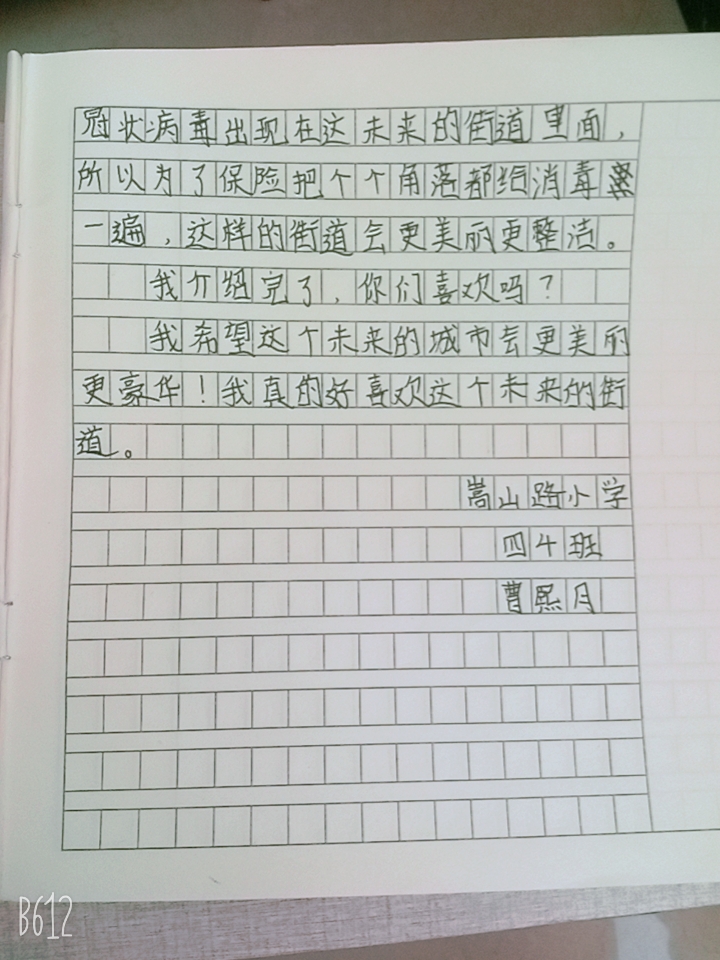 冠状病毒出现在这未来的街道里面，
所以为了保险把个个角落都给消毒
一遍，这样的街道会更美丽更整洁。
我介绍完了，你们喜欢吗？
我希望这个未来的城市会更美丽
更豪华！我真的好喜欢这个未来的街
道。
嵩山路小学
四4班
曹熙月
B612